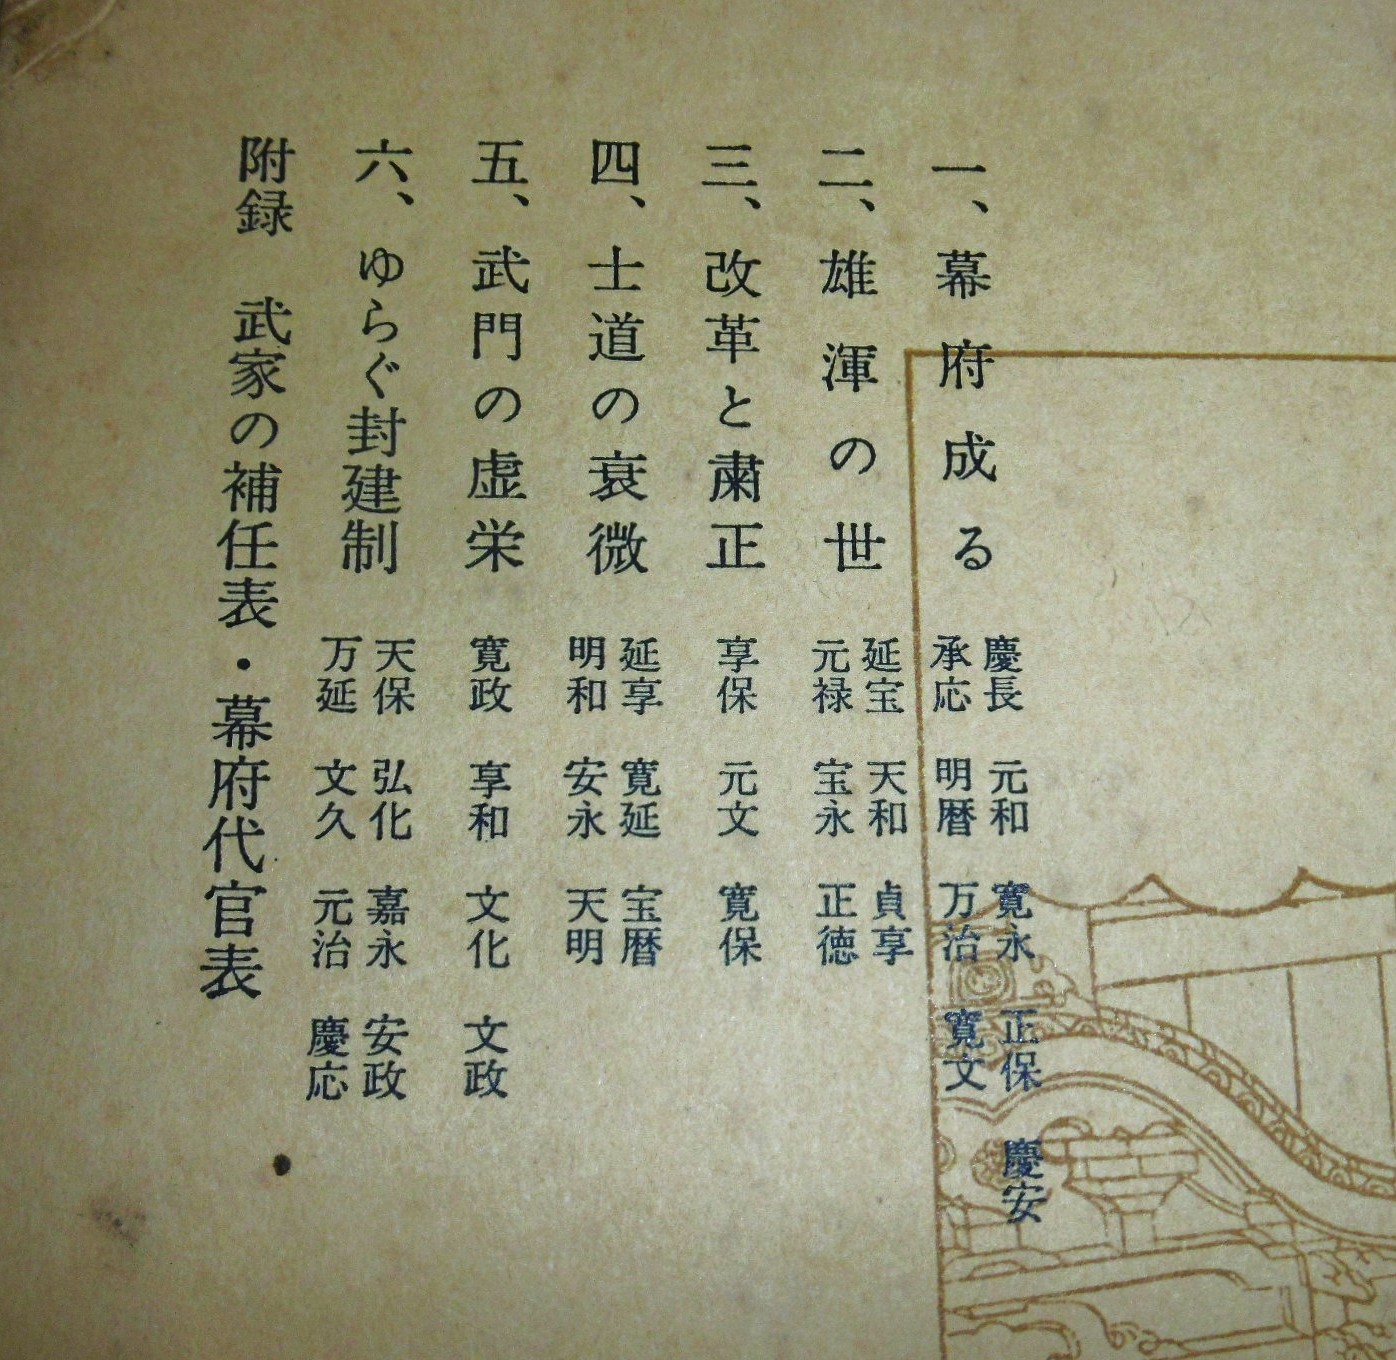 一、幕府成る
慶長 元和 寛永 正保 慶安
承応 明暦 万治 寛文
二、雄渾の世
延宝 天和 貞享
元禄 宝永 正徳
三、改革と粛正
享保 元文 寛保
四、士道の衰微
延享 寛延 宝暦
明和 安永 天明
五、武門の虚栄
寛政 享和 文化 文政
六、ゆらぐ封建制
天保 弘化 嘉永 安政
万延 文久 元治 慶応
附録 武家の補任表・幕府代官表